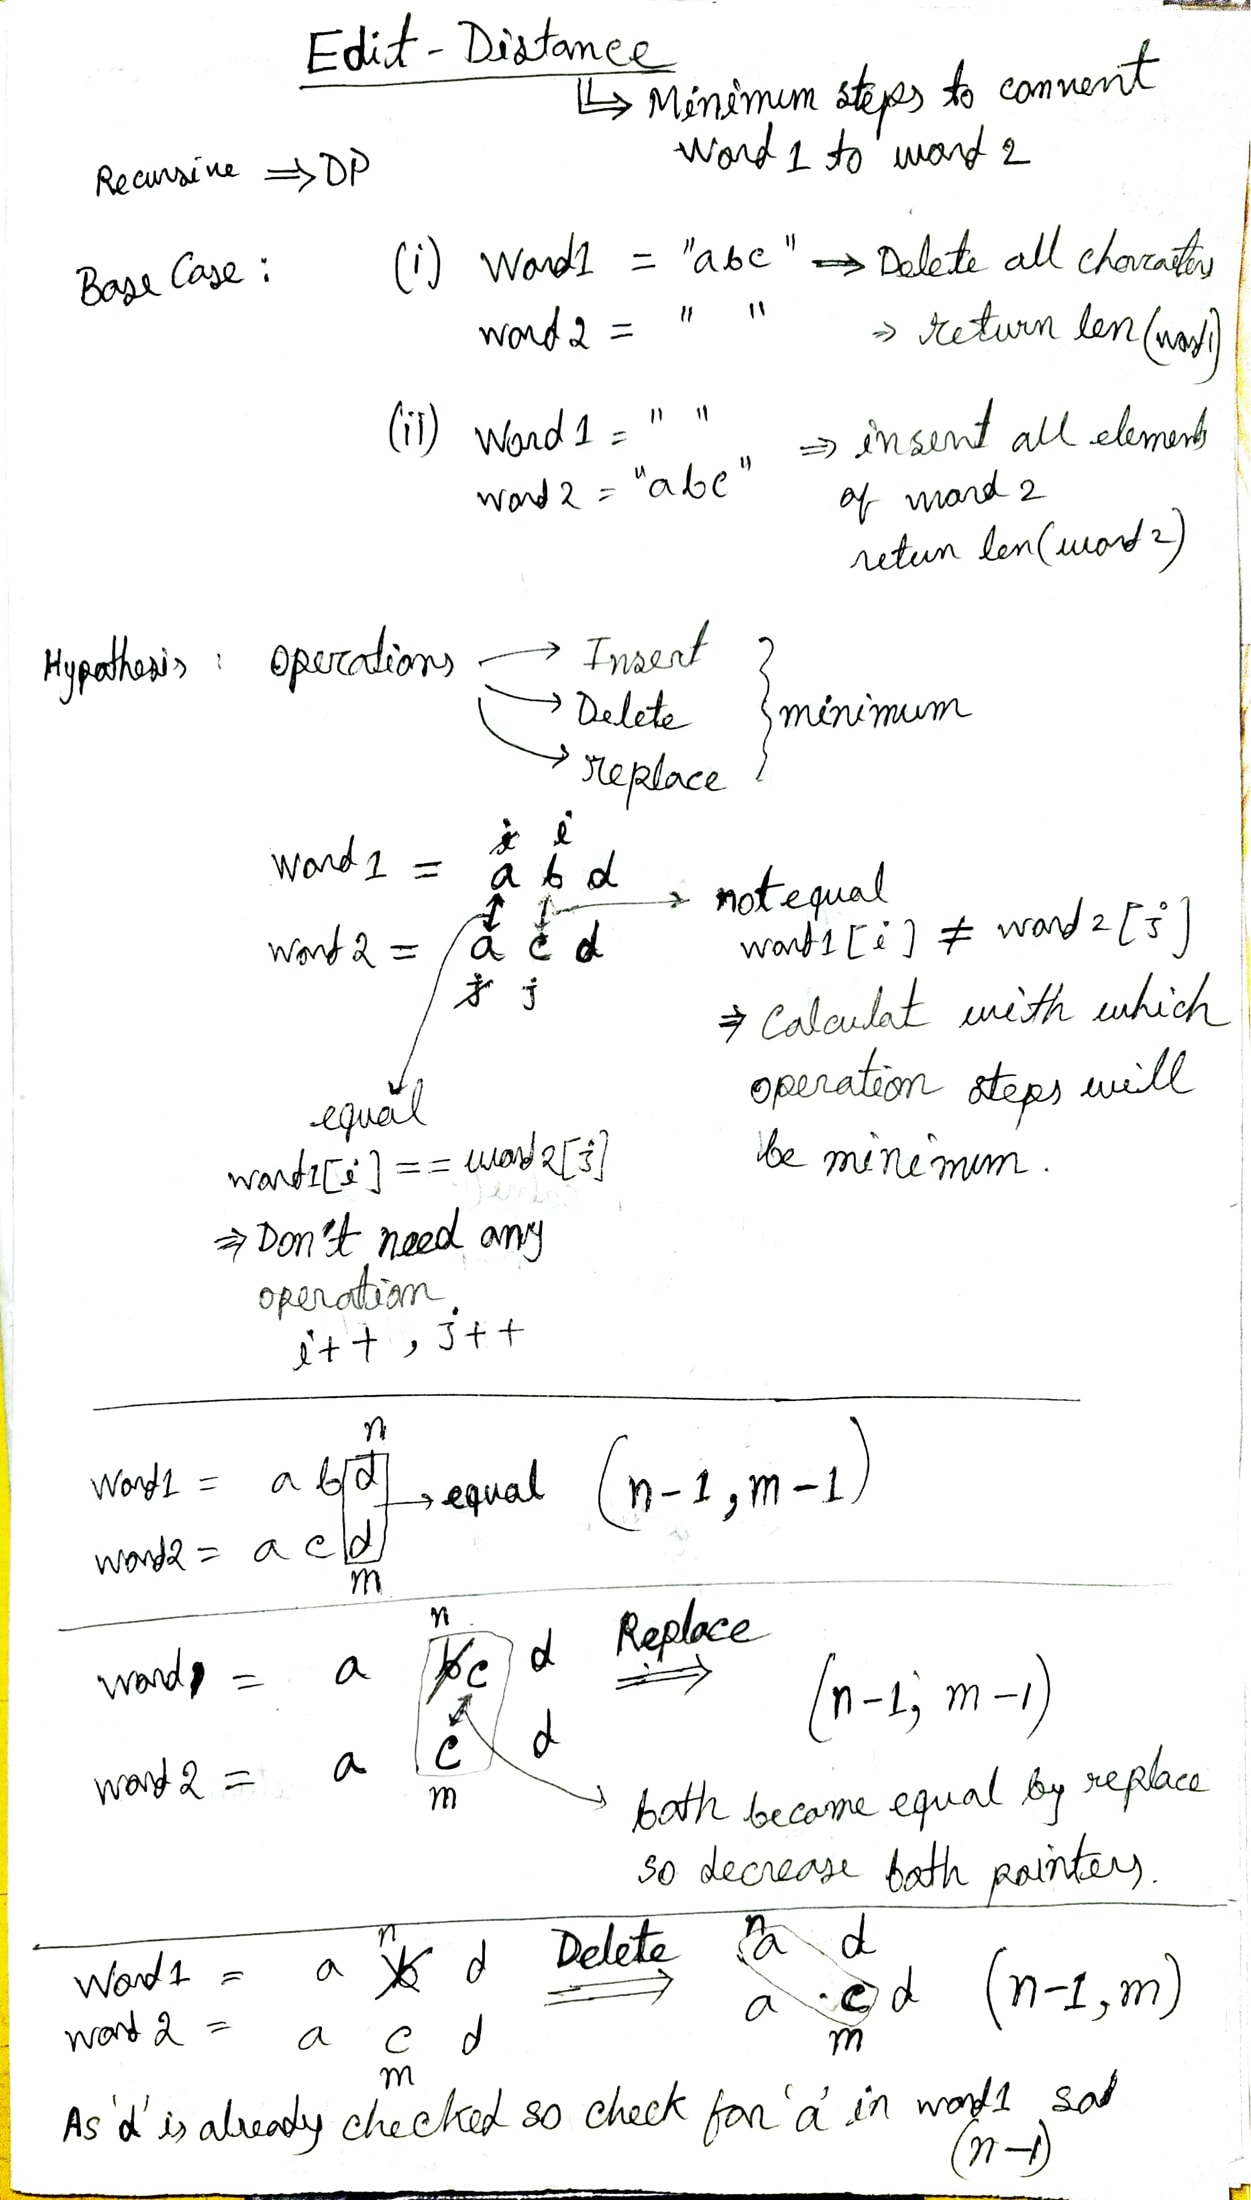 Edit - Distance
↳ Minimum steps to convert
Word 1 to word 2
Recursive ⇒ DP
Base Case : (i) Word1 = "abc" ⇒ Delete all characters
word 2 = " " ⇒ return len(word1)
(ii) Word 1 = " " ⇒ insert all elements
word 2 = "abc" of word 2
retun len(word 2)
Hypothesis : Operations → Insert
→ Delete } minimum
→ replace
i i
Word 1 = a b d
→ not equal
word 2 = a c d word1[i] ≠ word2[j]
j j
⇒ Calculat with which
operation steps will
be minimum.
equal
word1[i] == word2[j]
⇒ Don't need any
operation.
i++ , j++
n
Word1 = a b d → equal (n-1, m-1)
word2 = a c d
m
n
word1 = a b c d Replace ⇒ (n-1; m-1)
word 2 = a c d
m
both became equal by replace
so decrease both pointers.
n Delete n
Word 1 = a b d ⇒ a d
word 2 = a c d a c d (n-1, m)
m m
As 'd' is already checked so check for 'a' in word1
(n-1)